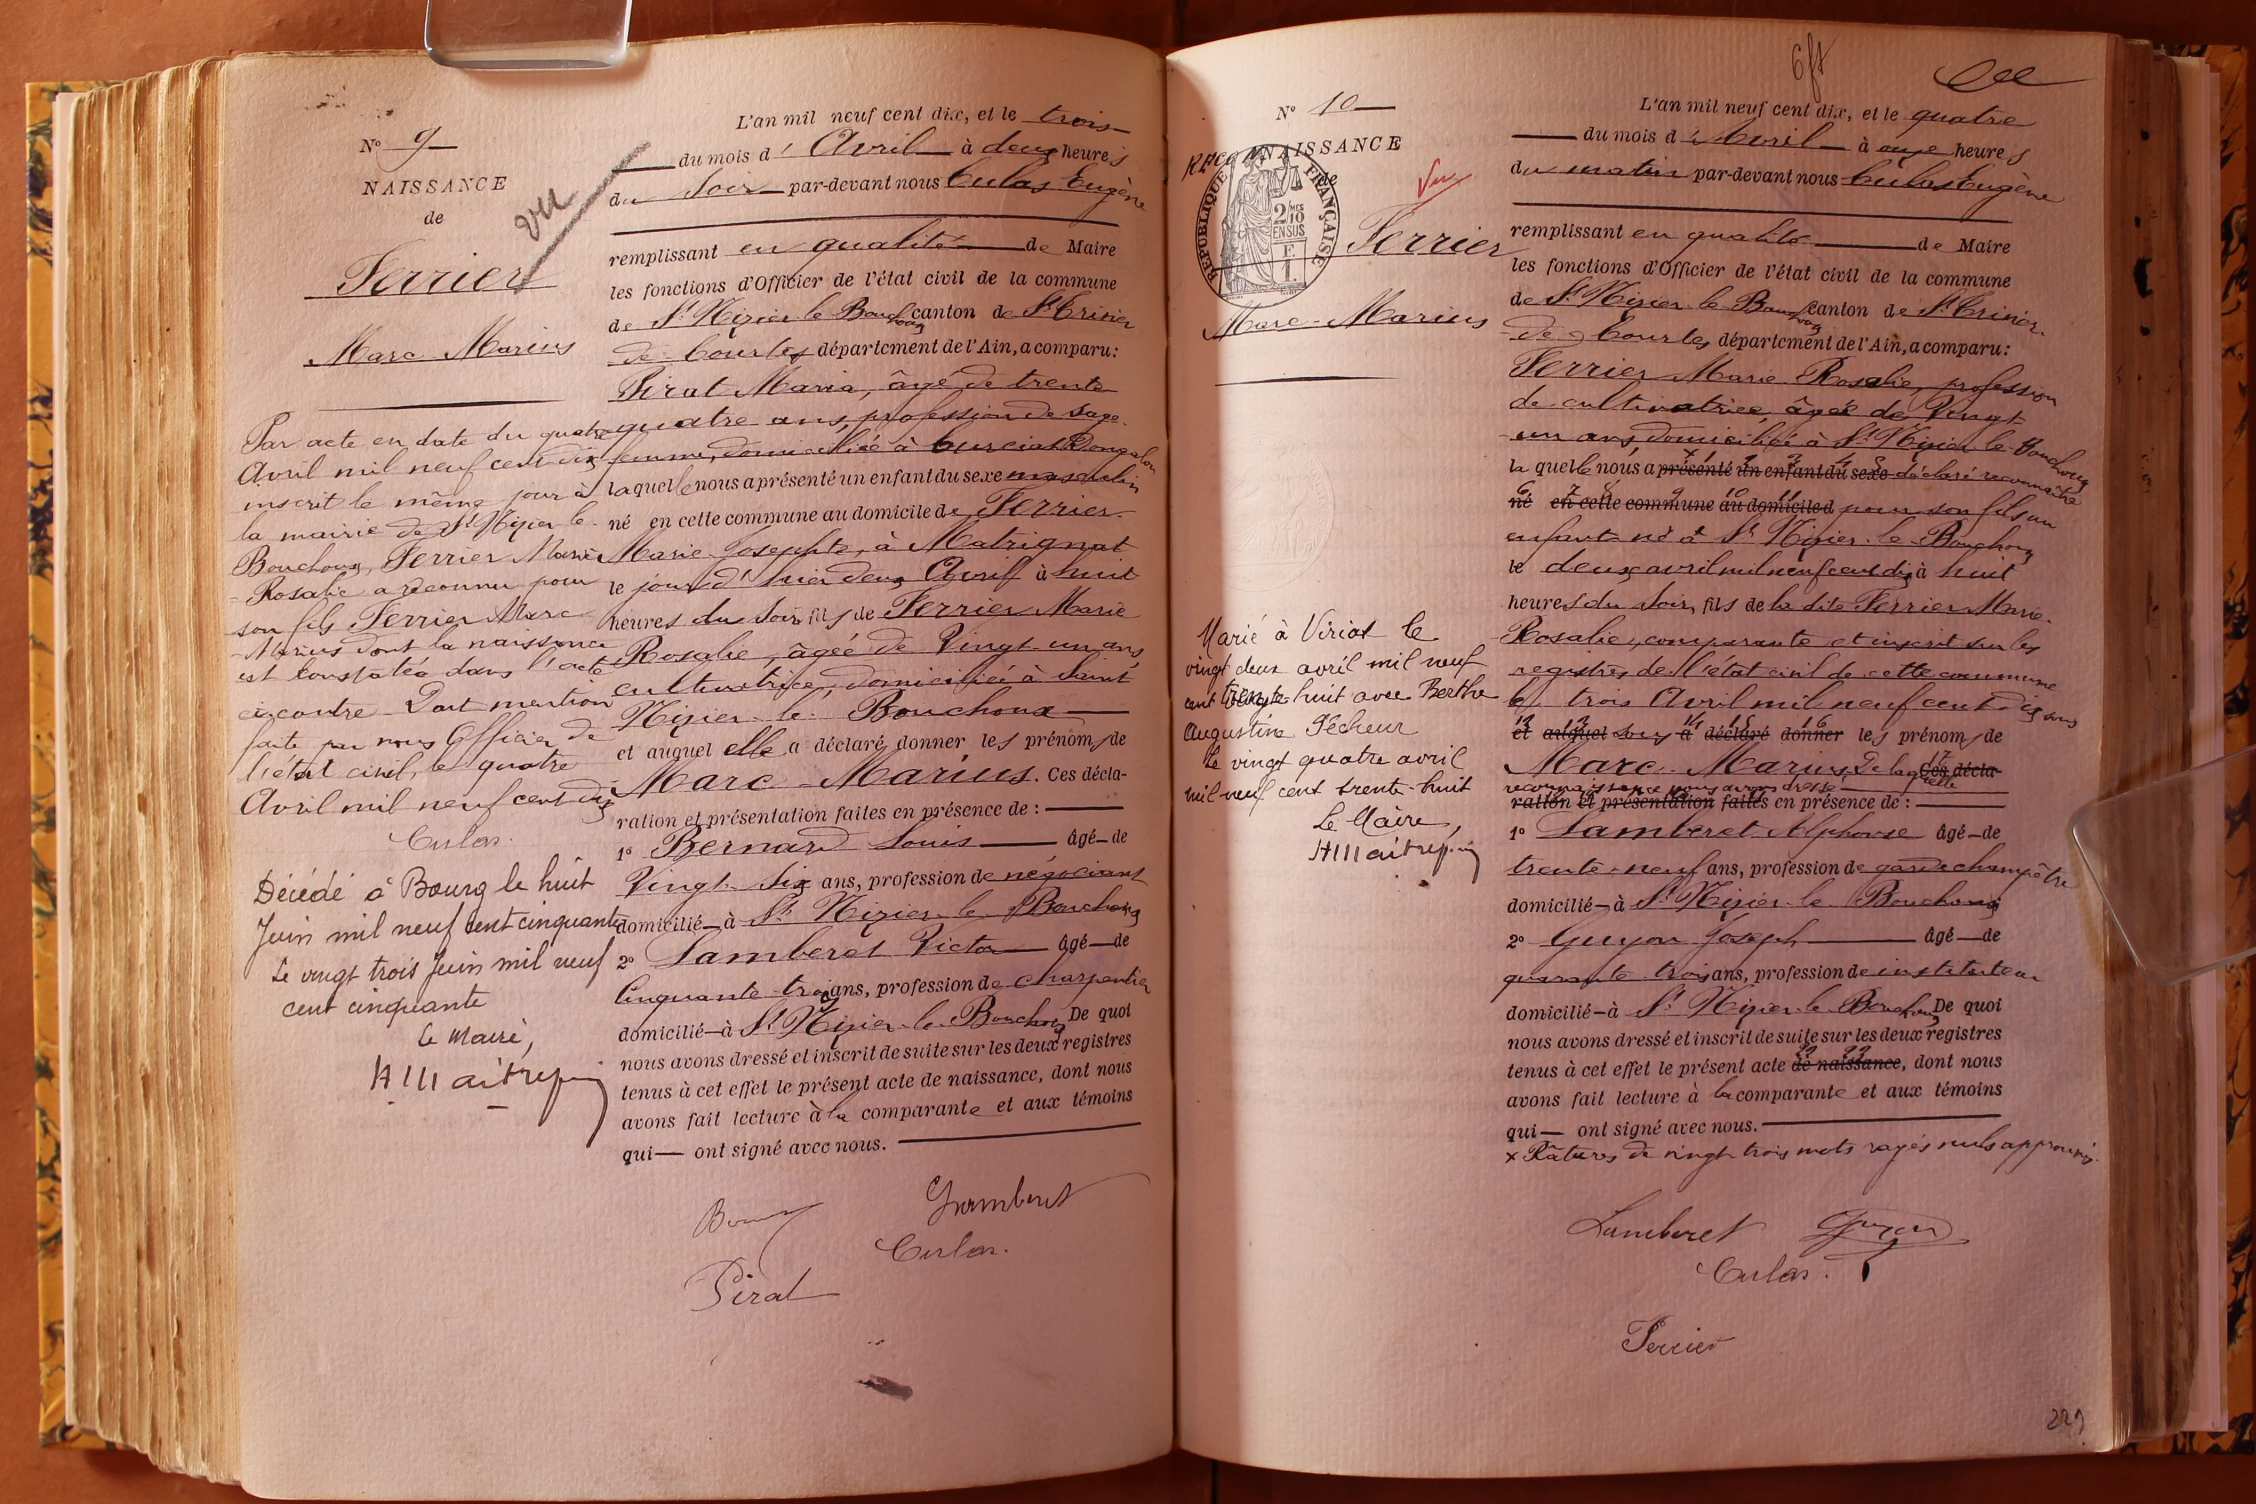 N° 9
NAISSANCE
de
Ferrier
Marc Marius
vu
Par acte en date du quatre
Avril mil neuf cent dix
inscrit le même jour à
la mairie de St Nizier le
Bouchoux, Ferrier Marie
Rosalie a reconnu pour
son fils Ferrier Marc
Marius dont la naissance
est constatée dans l'acte
ci contre Dont mention
faite par nous Officier de
l'état civil, le quatre
Avril mil neuf cent dix
Culas.
Décédé à Bourg le huit
Juin mil neuf cent cinquante
Le vingt trois Juin mil neuf
cent cinquante
Le Maire,
L'an mil neuf cent dix, et le trois
du mois d'Avril à deux heures
du soir par-devant nous Culas Eugène
remplissant en qualité de Maire
les fonctions d'Officier de l'état civil de la commune
de St Nizier le Bouchoux canton de St Trivier
de Courtes département de l'Ain, a comparu:
Pirat Maria, âgé de trente
quatre ans, profession de sage
femme, domiciliée à Curciat Dongalon
laquelle nous a présenté un enfant du sexe masculin
né en cette commune au domicile de Ferrier
Marie Josephte, à Matrignat
le jour d'hier deux Avril à huit
heures du soir, fils de Ferrier Marie
Rosalie, âgée de Vingt un ans
cultivatrice, domiciliée à Saint
Nizier le Bouchoux
et auquel elle a déclaré donner les prénoms de
Marc Marius. Ces décla-
ration et présentation faites en présence de :
1° Bernard Louis âgé de
Vingt six ans, profession de négociant
domicilié à St Nizier le Bouchoux
2° Lamberet Victor âgé de
Cinquante trois ans, profession de charpentier
domicilié à St Nizier le Bouchoux De quoi
nous avons dressé et inscrit de suite sur les deux registres
tenus à cet effet le présent acte de naissance, dont nous
avons fait lecture à la comparante et aux témoins
qui ont signé avec nous.
Lamberet
Culas.
Pirat
N° 10
RECONNAISSANCE
de
RÉPUBLIQUE FRANÇAISE
2/10 MES
EN SUS
F
1.
Vu
Ferrier
Marc-Marius
Marié à Viriat le
vingt deux avril mil neuf
cent trente huit avec Berthe
Augustine Pêcheur
Le vingt quatre avril
mil neuf cent trente-huit
Le Maire,
L'an mil neuf cent dix, et le quatre
du mois d'Avril à onze heures
du matin par-devant nous Culas Eugène
remplissant en qualité de Maire
les fonctions d'Officier de l'état civil de la commune
de St Nizier le Bouchoux canton de St Trivier
de Courtes département de l'Ain, a comparu:
Ferrier Marie Rosalie, profession
de cultivatrice, âgée de Vingt
un ans domiciliée à St Nizier le Bouchoux
la quelle nous a présenté un enfant du sexe déclaré reconnaître
né en cette commune au domicile d pour son fils un
enfant né à St Nizier le Bouchoux
le deux avril mil neuf cent dix à huit
heures du soir, fils de la dite Ferrier Marie
Rosalie, comparante et inscrit sur les
registres de l'état civil de cette commune
le trois Avril mil neuf cent dix sous
et auquel a déclaré donner les prénoms de
Marc-Marius, De laquelle Ces décla-
reconnaissance nous avons dressé
ration et présentation faites en présence de :
1° Lamberet Alphonse âgé de
trente-neuf ans, profession de garde champêtre
domicilié à St Nizier le Bouchoux
2° Guyon Joseph âgé de
quarante trois ans, profession de instituteur
domicilié à St Nizier le Bouchoux De quoi
nous avons dressé et inscrit de suite sur les deux registres
tenus à cet effet le présent acte de naissance, dont nous
avons fait lecture à la comparante et aux témoins
qui ont signé avec nous.
x Ratures de vingt trois mots rayés nuls approuvés.
Lamberet Guyon
Culas.
Ferrier